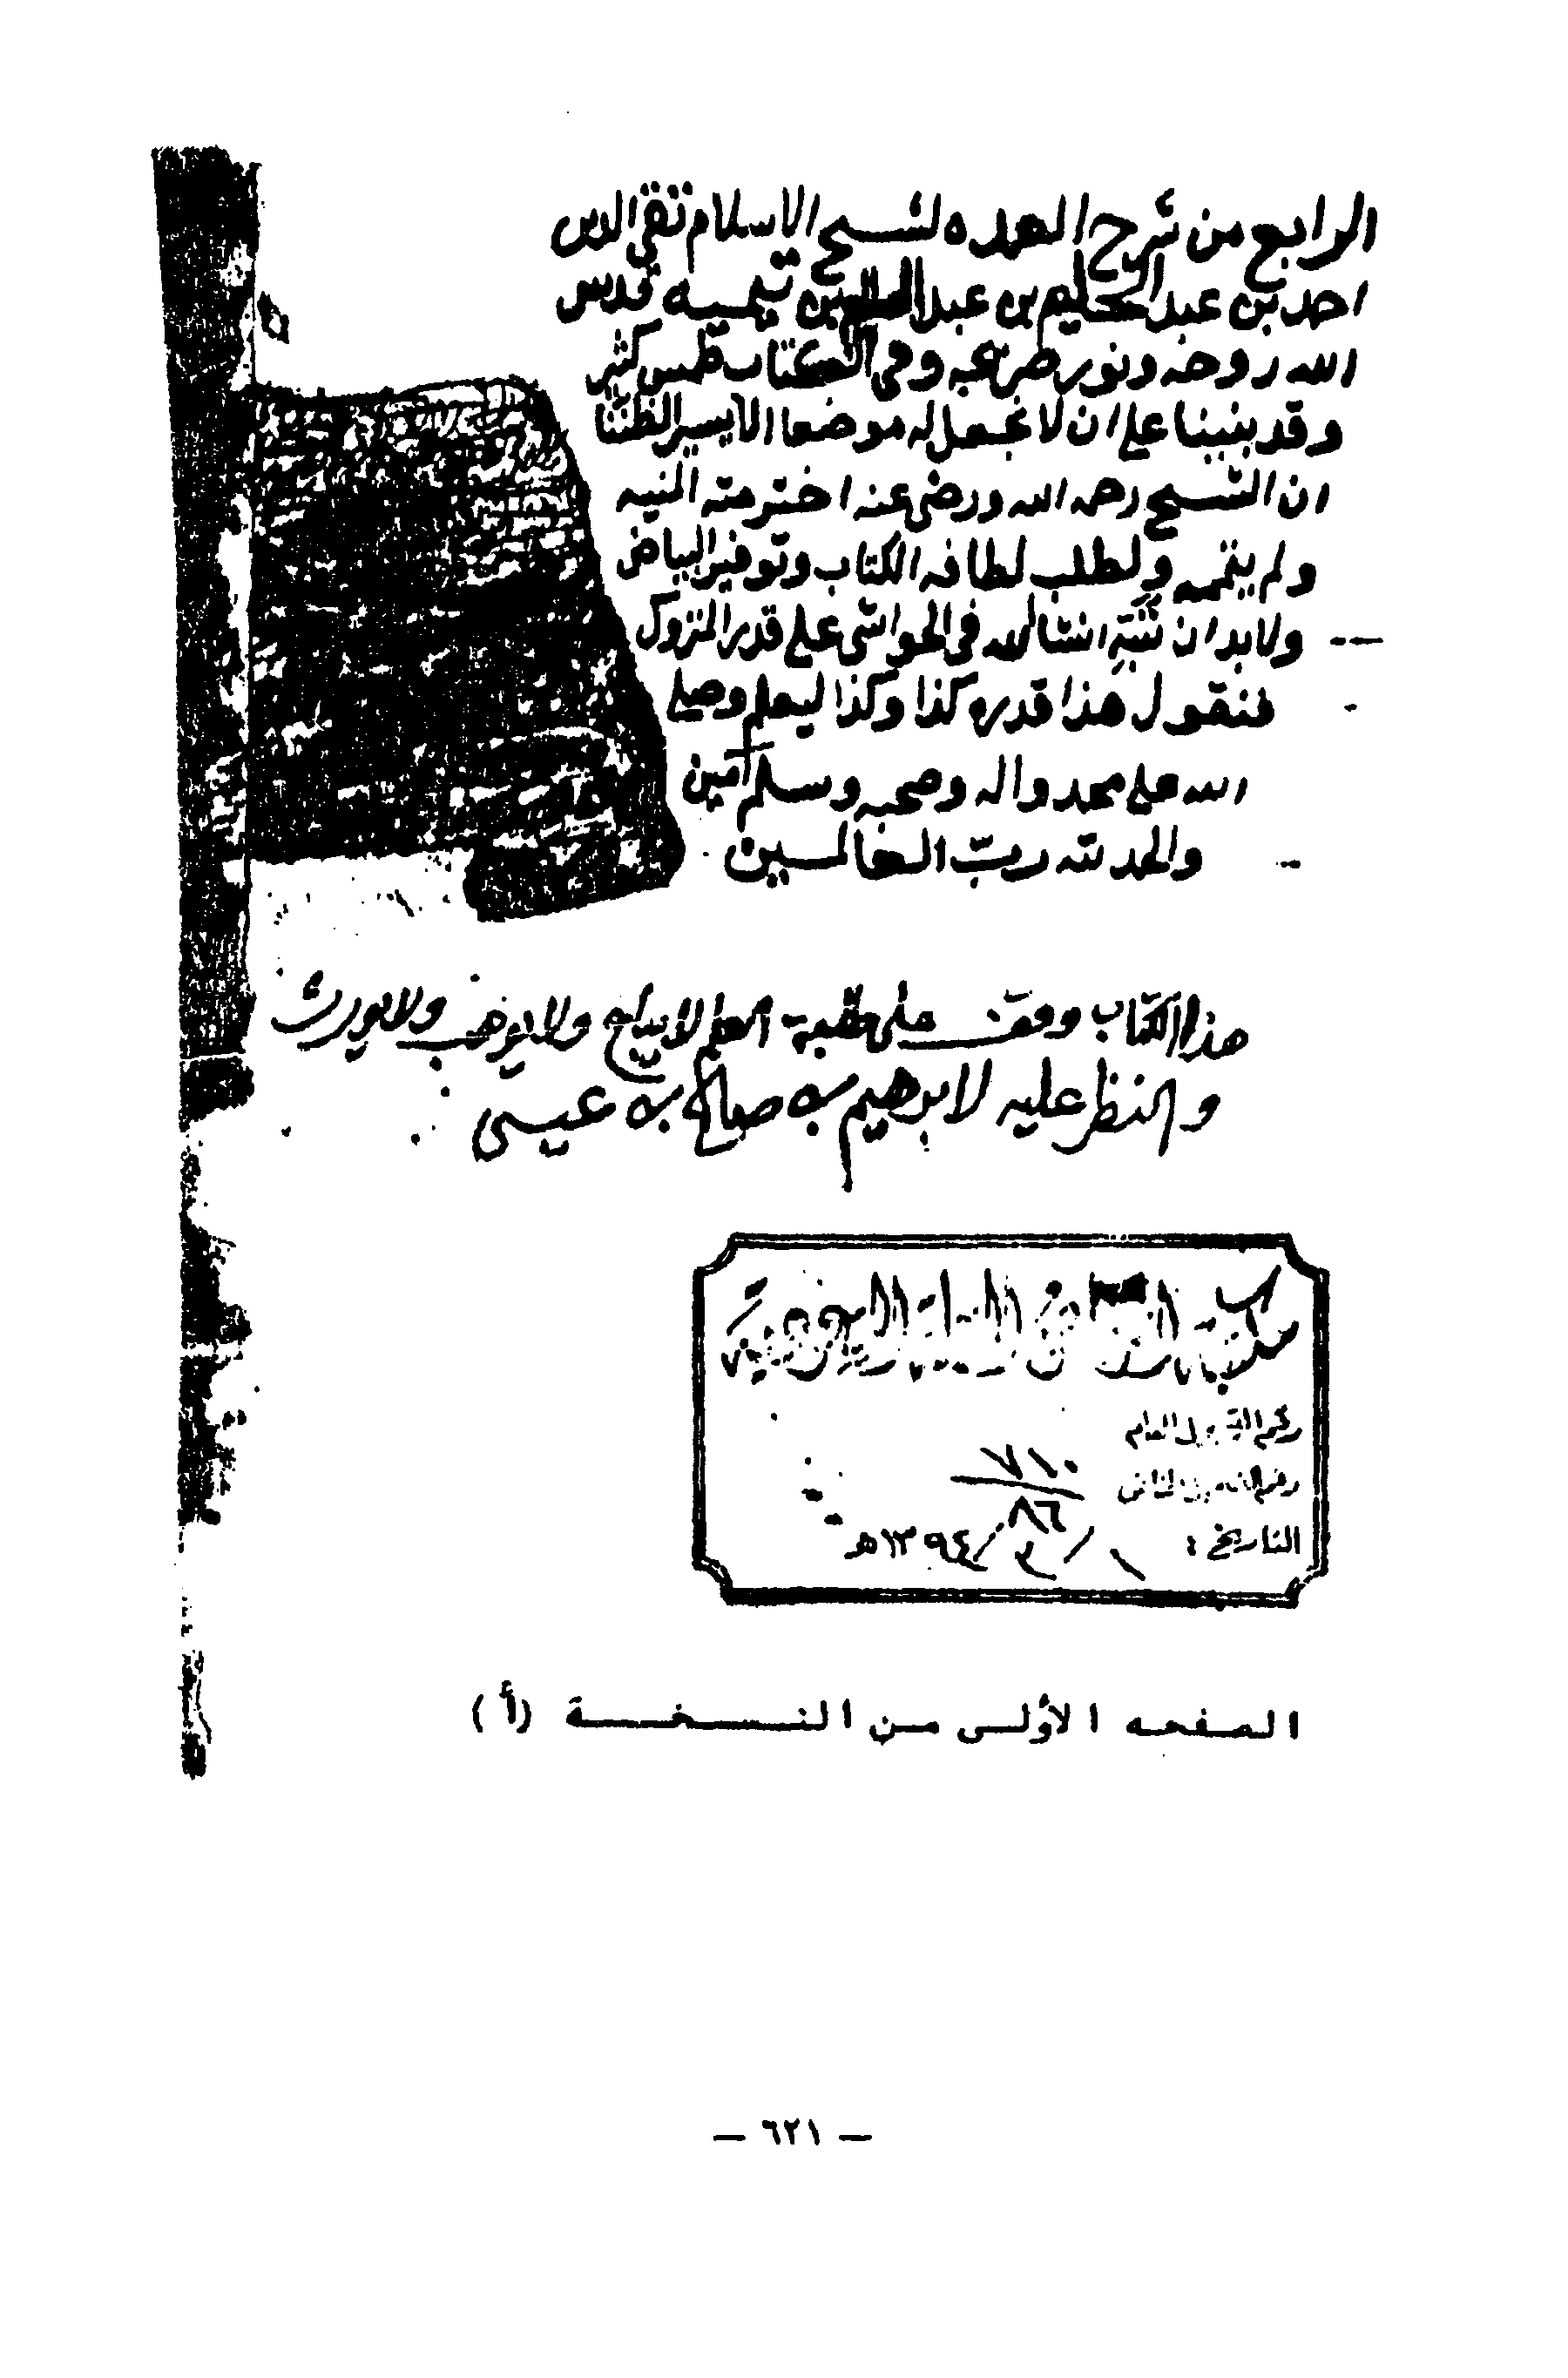 الرابع من شرح العمده لشيخ الاسلام تقي الدين
احمد بن عبد الحليم بن عبد السلام بن تيميه قدس
الله روحه ونور ضريحه وفي الكتاب طمس كثير
وقد بنينا على ان لا نجعل له موضعا الا يسيرا لظننا
ان الشيخ رحمه الله ورضي عنه اخترمته المنيه
ولم يتمه ولطلب لطافه الكتاب وتوفير البياض
ولا بد ان ننبه انشا الله في الحواشي على قدر المتروك
فنقول هذا قدره كذا وكذا ليعلم وصلى
الله على محمد واله وصحبه وسلم آمين
والحمد لله ربّ العالمين
هذا الكتاب وقف على طلبة العلم لا يباع ولا يوهب ولا يورث
والنظر عليه لابرهيم بن صالح بن عيسى
رقم العام
٧١٠
رقم الخاص
٨٦
التاريخ : ١ / ٣ / ١٣٩٤ هـ
الصفحه الأولى من النسخة (أ)
— ٦٢١ —